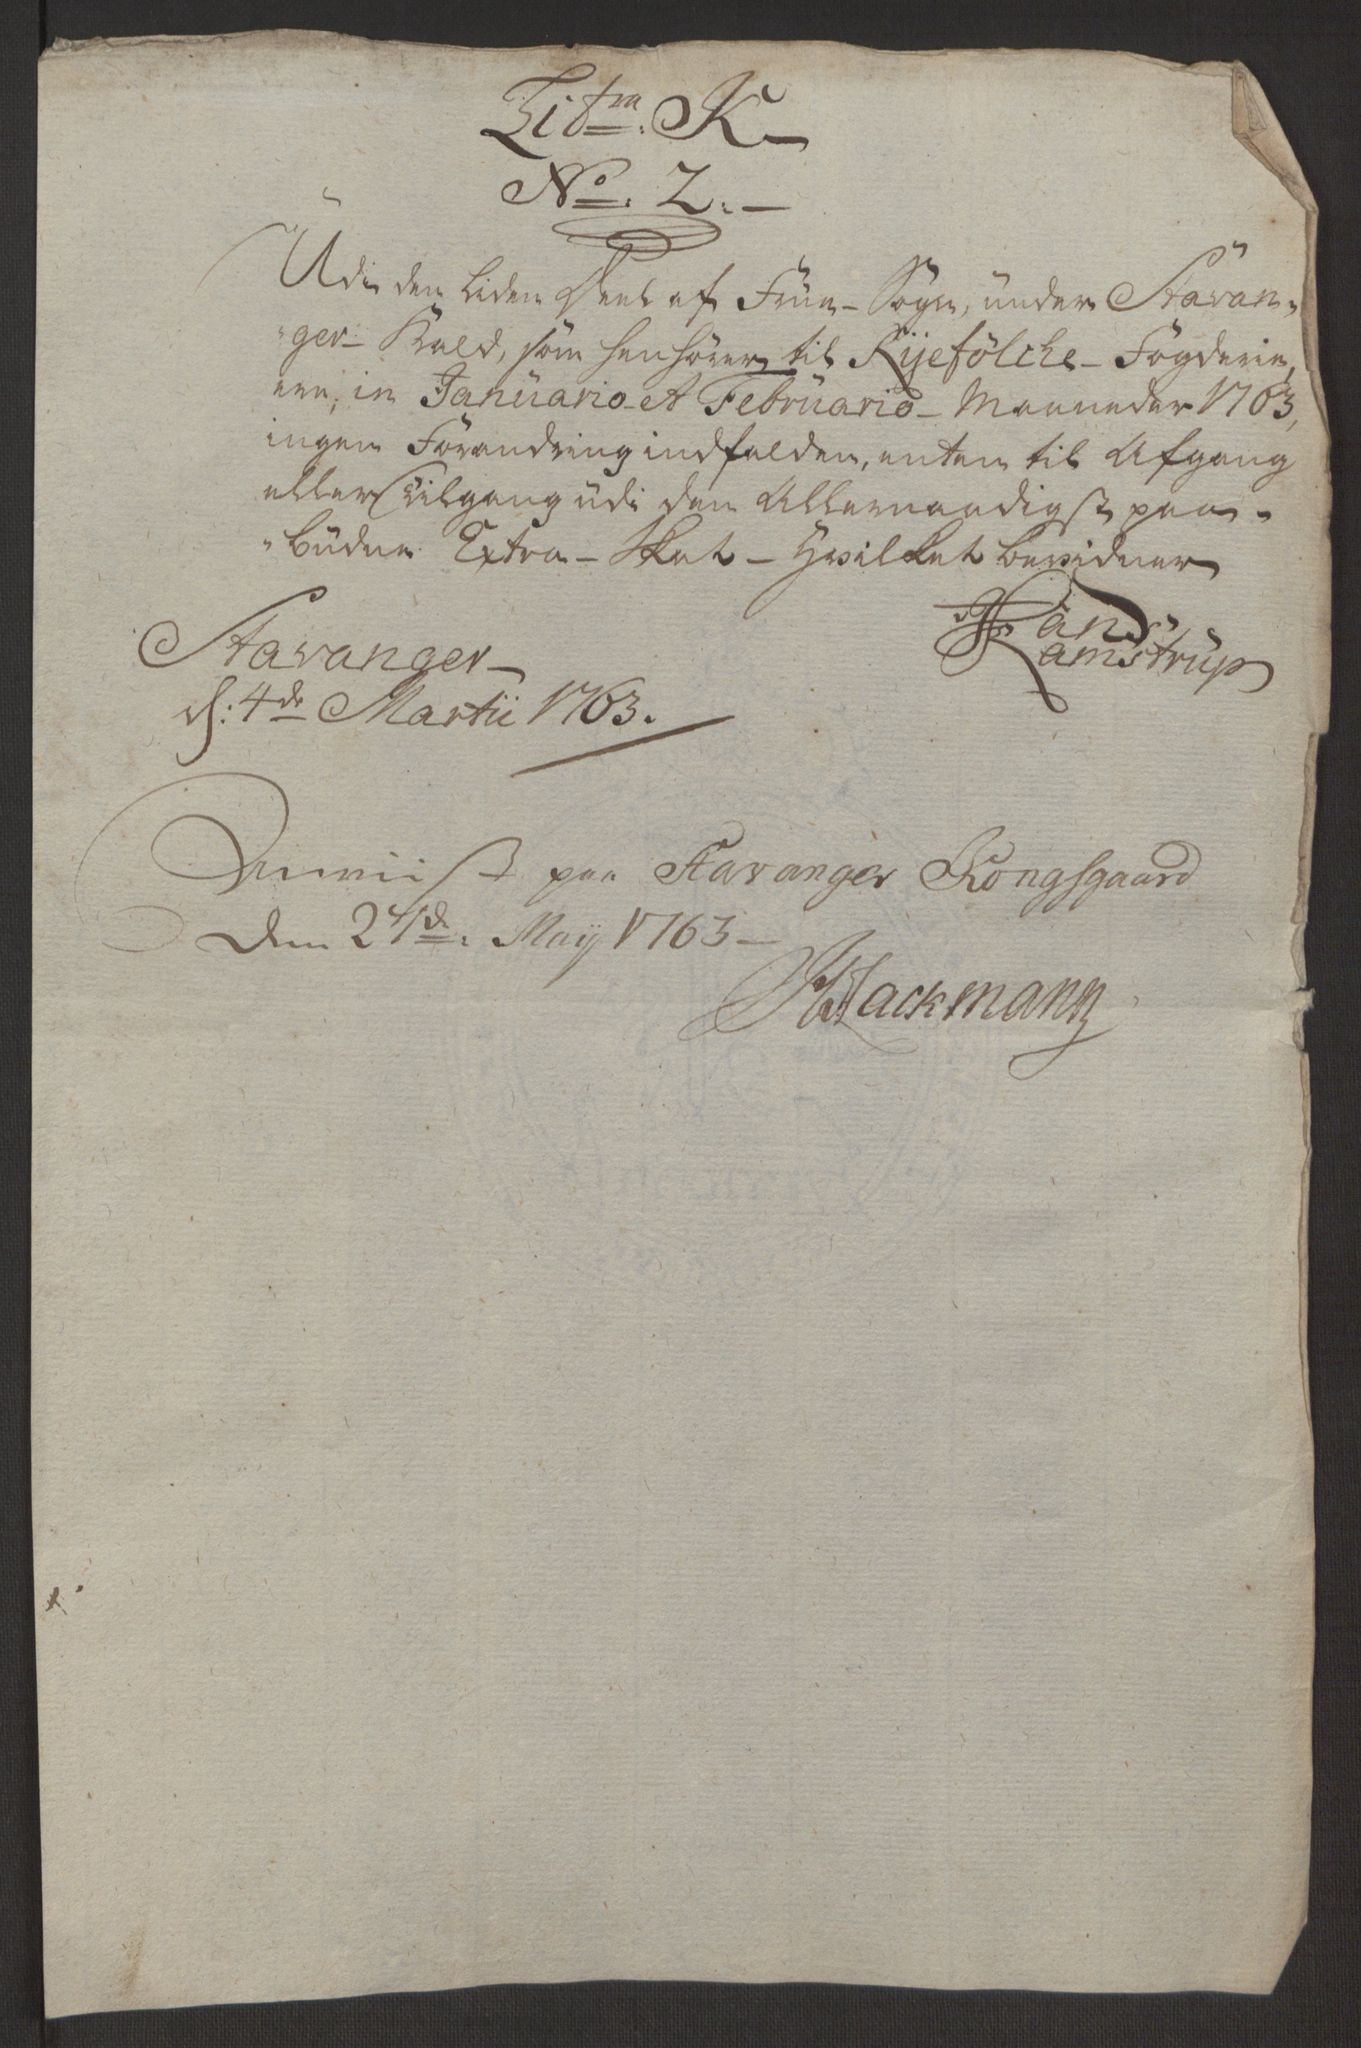 Litra. K
No. 2.
Udi den liden Deel af Frue-Sogn, under Stavan-
ger-Kald, som henhører til Ryefylche-Fogderie,
ere, in Januario et Februario Maaneder 1763,
ingen Forandring indfalden, enten til Afgang
eller Tilgang udi den Allernaadigst paa-
büden Extra-Skat - Hvilket bevidner
Stavanger
d: 4de Martii 1763.
Ramstrup
Anviist paa Stavanger Kongsgaard
den 27de. Maij 1763
Hackmann